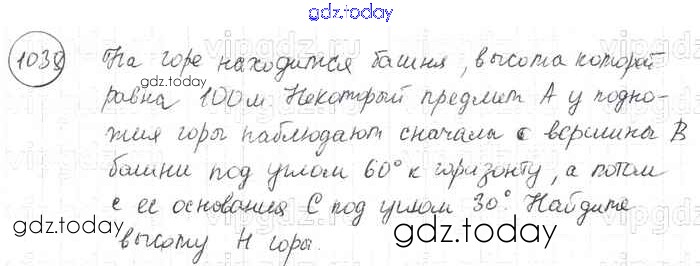 gdz.today
1038 На горе находится башня, высота которой
gdz.today
равна 100 м. Некоторый предмет А у подно-
жия горы наблюдают сначала с вершины В
башни под углом 60° к горизонту, а потом
gdz.today
с ее основания С под углом 30°. Найдите
gdz.today
высоту Н горы.